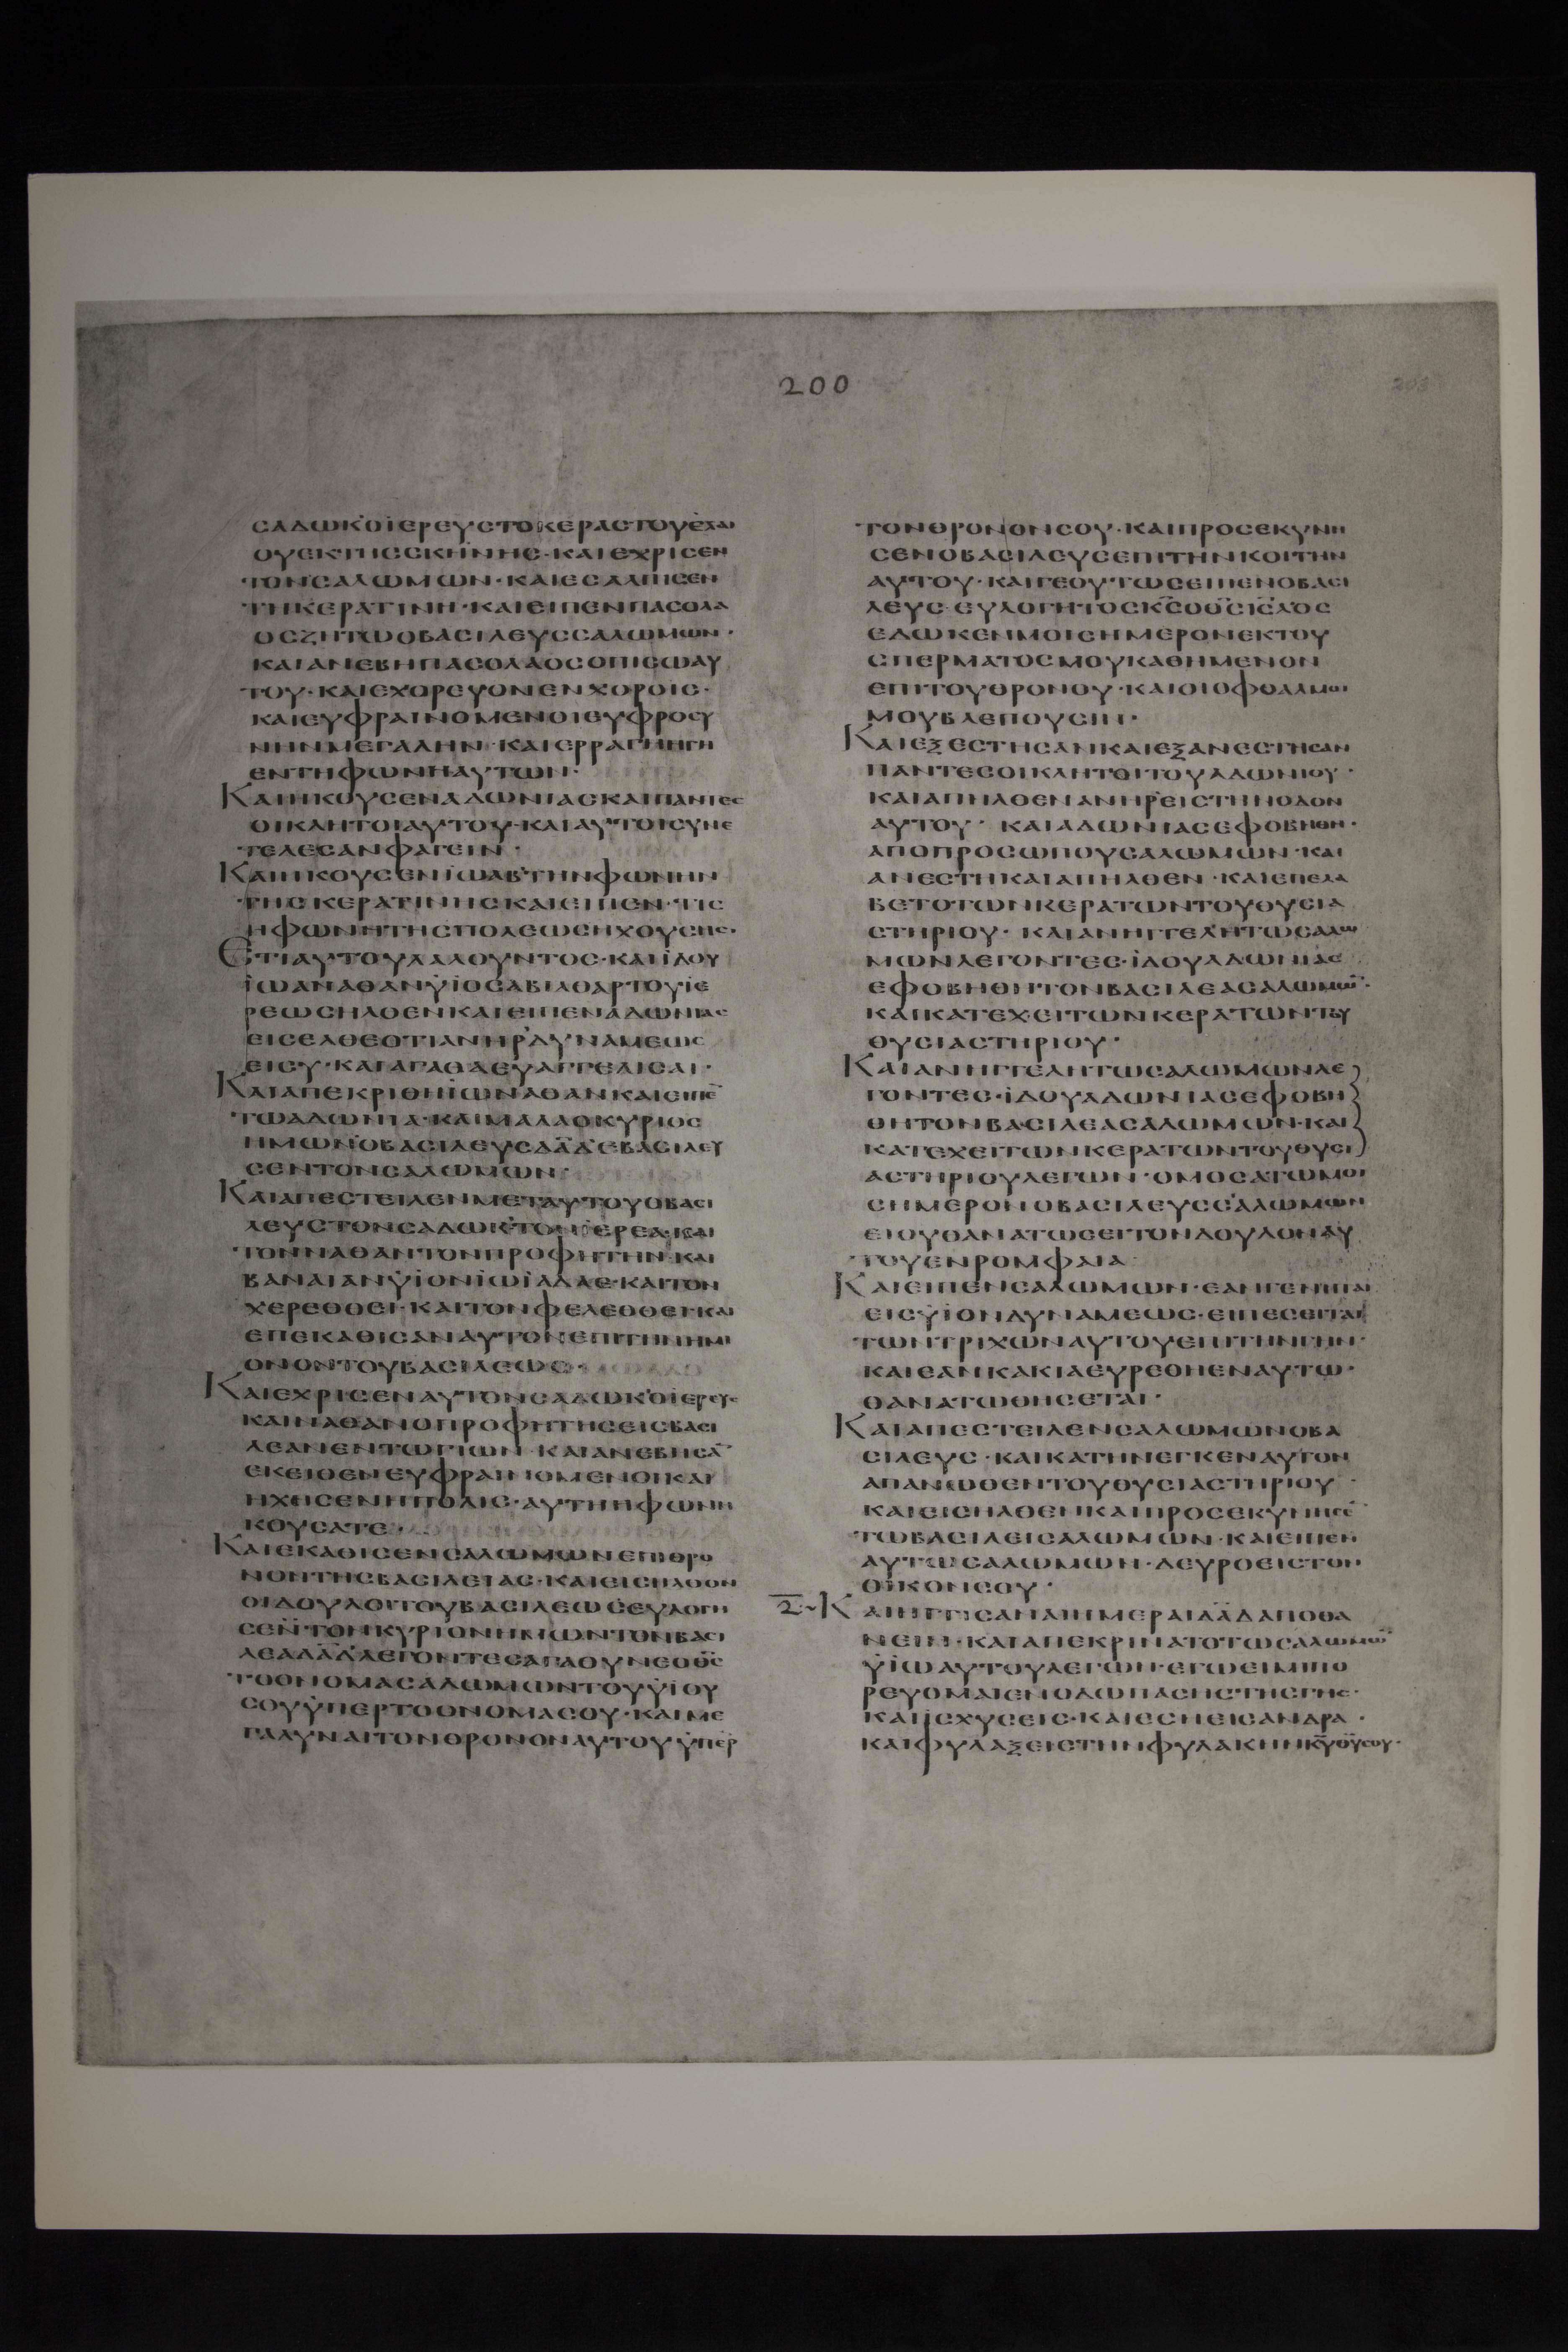 200
203
ϹΑΔΩΚ'ΟΪΕΡΕΥϹΤΟΚΕΡΑϹΤΟΥΕΛΑΙ
ΟΥΕΚΤΗϹϹΚΗΝΗϹ·ΚΑΙΕΧΡΙϹΕΝ
ΤΟΝϹΑΛΩΜΩΝ·ΚΑΙΕϹΑΛΠΙϹΕΝ
ΤΗΚΕΡΑΤΙΝΗ·ΚΑΙΕΙΠΕΝΠΑϹΟΛΑ
ΟϹΖΗΤΩΟΒΑϹΙΛΕΥϹϹΑΛΩΜΩΝ·
ΚΑΙΑΝΕΒΗΠΑϹΟΛΑΟϹΟΠΙϹΩΑΥ
ΤΟΥ·ΚΑΙΕΧΟΡΕΥΟΝΕΝΧΟΡΟΙϹ·
ΚΑΙΕΥΦΡΑΙΝΟΜΕΝΟΙΕΥΦΡΟϹΥ
ΝΗΝΜΕΓΑΛΗΝ·ΚΑΙΕΡΡΑΓΗΗΓΗ
ΕΝΤΗΦΩΝΗΑΥΤΩΝ·
ΚΑΙΗΚΟΥϹΕΝΑΔΩΝΙΑϹΚΑΙΠΑΝΤΕϹ
ΟΙΚΛΗΤΟΙΑΥΤΟΥ·ΚΑΙΑΥΤΟΙϹΥΝΕ
ΤΕΛΕϹΑΝΦΑΓΕΙΝ·
ΚΑΙΗΚΟΥϹΕΝΪΩΑΒ'ΤΗΝΦΩΝΗΝ
ΤΗϹΚΕΡΑΤΙΝΗϹΚΑΙΕΙΠΕΝ·ΤΙϹ
ΗΦΩΝΗΤΗϹΠΟΛΕΩϹΗΧΟΥϹΗϹ·
ΕΤΙΑΥΤΟΥΛΑΛΟΥΝΤΟϹ·ΚΑΙΪΔΟΥ
ΪΩΑΝΑΘΑΝΫΪΟϹΑΒΙΑΘΑΡΤΟΥΪΕ
ΡΕΩϹΗΛΘΕΝΚΑΙΕΙΠΕΝΑΔΩΝΙΑϹ
ΕΙϹΕΛΘΕΟΤΙΑΝΗΡΔΥΝΑΜΕΩϹ
ΕΙϹΥ·ΚΑΙΑΓΑΘΑΕΥΑΓΓΕΛΙϹΑΙ·
ΚΑΙΑΠΕΚΡΙΘΗΪΩΝΑΘΑΝΚΑΙΕΙΠΕ̅
ΤΩΑΔΩΝΙΑ·ΚΑΙΜΑΛΑΟΚΥΡΙΟϹ
ΗΜΩΝΟΒΑϹΙΛΕΥϹΔΑ̅Δ'ΕΒΑϹΙΛΕΥ
ϹΕΝΤΟΝϹΑΛΩΜΩΝ·
ΚΑΙΑΠΕϹΤΕΙΛΕΝΜΕΤΑΥΤΟΥΟΒΑϹΙ
ΛΕΥϹΤΟΝϹΑΔΩΚ'ΤΟΝΪΕΡΕΑ·ΚΑΙ
ΤΟΝΝΑΘΑΝΤΟΝΠΡΟΦΗΤΗΝ·ΚΑΙ
ΒΑΝΑΙΑΝΫΪΟΝΪΩΪΑΔΑΕ·ΚΑΙΤΟΝ
ΧΕΡΕΘΘΕΙ·ΚΑΙΤΟΝΦΕΛΕΘΘΕΙ·ΚΑΙ
ΕΠΕΚΑΘΙϹΑΝΑΥΤΟΝΕΠΙΤΗΝΗΜΙ
ΟΝΟΝΤΟΥΒΑϹΙΛΕΩϹ·
ΚΑΙΕΧΡΙϹΕΝΑΥΤΟΝϹΑΔΩΚ'ΟΪΕΡΕΥϹ
ΚΑΙΝΑΘΑΝΟΠΡΟΦΗΤΗϹΕΙϹΒΑϹΙ
ΛΕΑΝΕΝΤΩΓΙΩΝ·ΚΑΙΑΝΕΒΗϹΑ̅
ΕΚΕΙΘΕΝΕΥΦΡΑΙΝΟΜΕΝΟΙΚΑΙ
ΗΧΗϹΕΝΗΠΟΛΙϹ·ΑΥΤΗΗΦΩΝΗ
ΚΟΥϹΑΤΕ·
ΚΑΙΕΚΑΘΙϹΕΝϹΑΛΩΜΩΝΕΠΙΘΡΟ
ΝΟΝΤΗϹΒΑϹΙΛΕΙΑϹ·ΚΑΙΕΙϹΗΛΘΟΝ
ΟΙΔΟΥΛΟΙΤΟΥΒΑϹΙΛΕΩϹΕΥΛΟΓΗ
ϹΕΝ·ΤΟΝΚΥΡΙΟΝΗΜΩΝΤΟΝΒΑϹΙ
ΛΕΑΔΑ̅Δ'ΛΕΓΟΝΤΕϹΑΓΑΘΥΝΕΟΘ̅Ϲ̅
ΤΟΟΝΟΜΑϹΑΛΩΜΩΝΤΟΥΫΪΟΥ
ϹΟΥΫΠΕΡΤΟΟΝΟΜΑϹΟΥ·ΚΑΙΜΕ
ΓΑΛΥΝΑΙΤΟΝΘΡΟΝΟΝΑΥΤΟΥΫΠΕΡ
ΤΟΝΘΡΟΝΟΝϹΟΥ·ΚΑΙΠΡΟϹΕΚΥΝΗ
ϹΕΝΟΒΑϹΙΛΕΥϹΕΠΙΤΗΝΚΟΙΤΗΝ
ΑΥΤΟΥ·ΚΑΙΓΕΟΥΤΩϹΕΙΠΕΝΟΒΑϹΙ
ΛΕΥϹ·ΕΥΛΟΓΗΤΟϹΚ̅Ϲ̅ΟΘ̅Ϲ̅Ι̅Ϲ̅Λ̅ΟϹ
ΕΔΩΚΕΝΜΟΙϹΗΜΕΡΟΝΕΚΤΟΥ
ϹΠΕΡΜΑΤΟϹΜΟΥΚΑΘΗΜΕΝΟΝ
ΕΠΙΤΟΥΘΡΟΝΟΥ·ΚΑΙΟΙΟΦΘΑΛΜΟΙ
ΜΟΥΒΛΕΠΟΥϹΙΝ·
ΚΑΙΕΞΕϹΤΗϹΑΝΚΑΙΕΞΑΝΕϹΤΗϹΑΝ
ΠΑΝΤΕϹΟΙΚΛΗΤΟΙΤΟΥΑΔΩΝΙΟΥ·
ΚΑΙΑΠΗΛΘΕΝΑΝΗΡΕΙϹΤΗΝΟΔΟΝ
ΑΥΤΟΥ· ΚΑΙΑΔΩΝΙΑϹΕΦΟΒΗΘΗ·
ΑΠΟΠΡΟϹΩΠΟΥϹΑΛΩΜΩΝ·ΚΑΙ
ΑΝΕϹΤΗΚΑΙΑΠΗΛΘΕΝ·ΚΑΙΕΠΕΛΑ
ΒΕΤΟΤΩΝΚΕΡΑΤΩΝΤΟΥΘΥϹΙΑ
ϹΤΗΡΙΟΥ· ΚΑΙΑΝΗΓΓΕΛΗΤΩϹΑΛΩ
ΜΩΝΛΕΓΟΝΤΕϹ·ΪΔΟΥΑΔΩΝΙΑϹ
ΕΦΟΒΗΘΗΤΟΝΒΑϹΙΛΕΑϹΑΛΩΜΩ̅·
ΚΑΙΚΑΤΕΧΕΙΤΩΝΚΕΡΑΤΩΝΤΟΥ
ΘΥϹΙΑϹΤΗΡΙΟΥ·
ΚΑΙΑΝΗΓΓΕΛΗΤΩϹΑΛΩΜΩΝΛΕ
ΓΟΝΤΕϹ·ΪΔΟΥΑΔΩΝΙΑϹΕΦΟΒΗ
ΘΗΤΟΝΒΑϹΙΛΕΑϹΑΛΩΜΩΝ·ΚΑΙ
ΚΑΤΕΧΕΙΤΩΝΚΕΡΑΤΩΝΤΟΥΘΥϹΙ
ΑϹΤΗΡΙΟΥΛΕΓΩΝ·ΟΜΟϹΑΤΩΜΟΙ
ϹΗΜΕΡΟΝΟΒΑϹΙΛΕΥϹϹΑΛΩΜΩΝ
ΕΙΟΥΘΑΝΑΤΩϹΕΙΤΟΝΔΟΥΛΟΝΑΥ
ΤΟΥΕΝΡΟΜΦΑΙΑ
ΚΑΙΕΙΠΕΝϹΑΛΩΜΩΝ·ΕΑΝΓΕΝΗΤΑΙ
ΕΙϹΫΪΟΝΔΥΝΑΜΕΩϹ·ΕΙΠΕϹΕΙΤΑΙ
ΤΩΝΤΡΙΧΩΝΑΥΤΟΥΕΠΙΤΗΝΓΗΝ·
ΚΑΙΕΑΝΚΑΚΙΑΕΥΡΕΘΗΕΝΑΥΤΩ·
ΘΑΝΑΤΩΘΗϹΕΤΑΙ·
ΚΑΙΑΠΕϹΤΕΙΛΕΝϹΑΛΩΜΩΝΟΒΑ
ϹΙΛΕΥϹ·ΚΑΙΚΑΤΗΝΕΓΚΕΝΑΥΤΟΝ
ΑΠΑΝΩΘΕΝΤΟΥΘΥϹΙΑϹΤΗΡΙΟΥ·
ΚΑΙΕΙϹΗΛΘΕΝΚΑΙΠΡΟϹΕΚΥΝΗϹΕ̅
ΤΩΒΑϹΙΛΕΙϹΑΛΩΜΩΝ·ΚΑΙΕΙΠΕΝ
ΑΥΤΩϹΑΛΩΜΩΝ·ΔΕΥΡΟΕΙϹΤΟΝ
ΟΙΚΟΝϹΟΥ·
2~ΚΑΙΗΓΓΙϹΑΝΑΙΗΜΕΡΑΙΔΑ̅ΔΑΠΟΘΑ
ΝΕΙΝ·ΚΑΙΑΠΕΚΡΙΝΑΤΟΤΩϹΑΛΩΜΩ̅
ΫΪΩΑΥΤΟΥΛΕΓΩΝ·ΕΓΩΕΙΜΙΠΟ
ΡΕΥΟΜΑΙΕΝΟΔΩΠΑϹΗϹΤΗϹΓΗϹ·
ΚΑΙΪϹΧΥϹΕΙϹ·ΚΑΙΕϹΗΕΙϹΑΝΔΡΑ·
ΚΑΙΦΥΛΑΞΕΙϹΤΗΝΦΥΛΑΚΗΝΚ̅Υ̅Θ̅Υ̅ϹΟΥ·